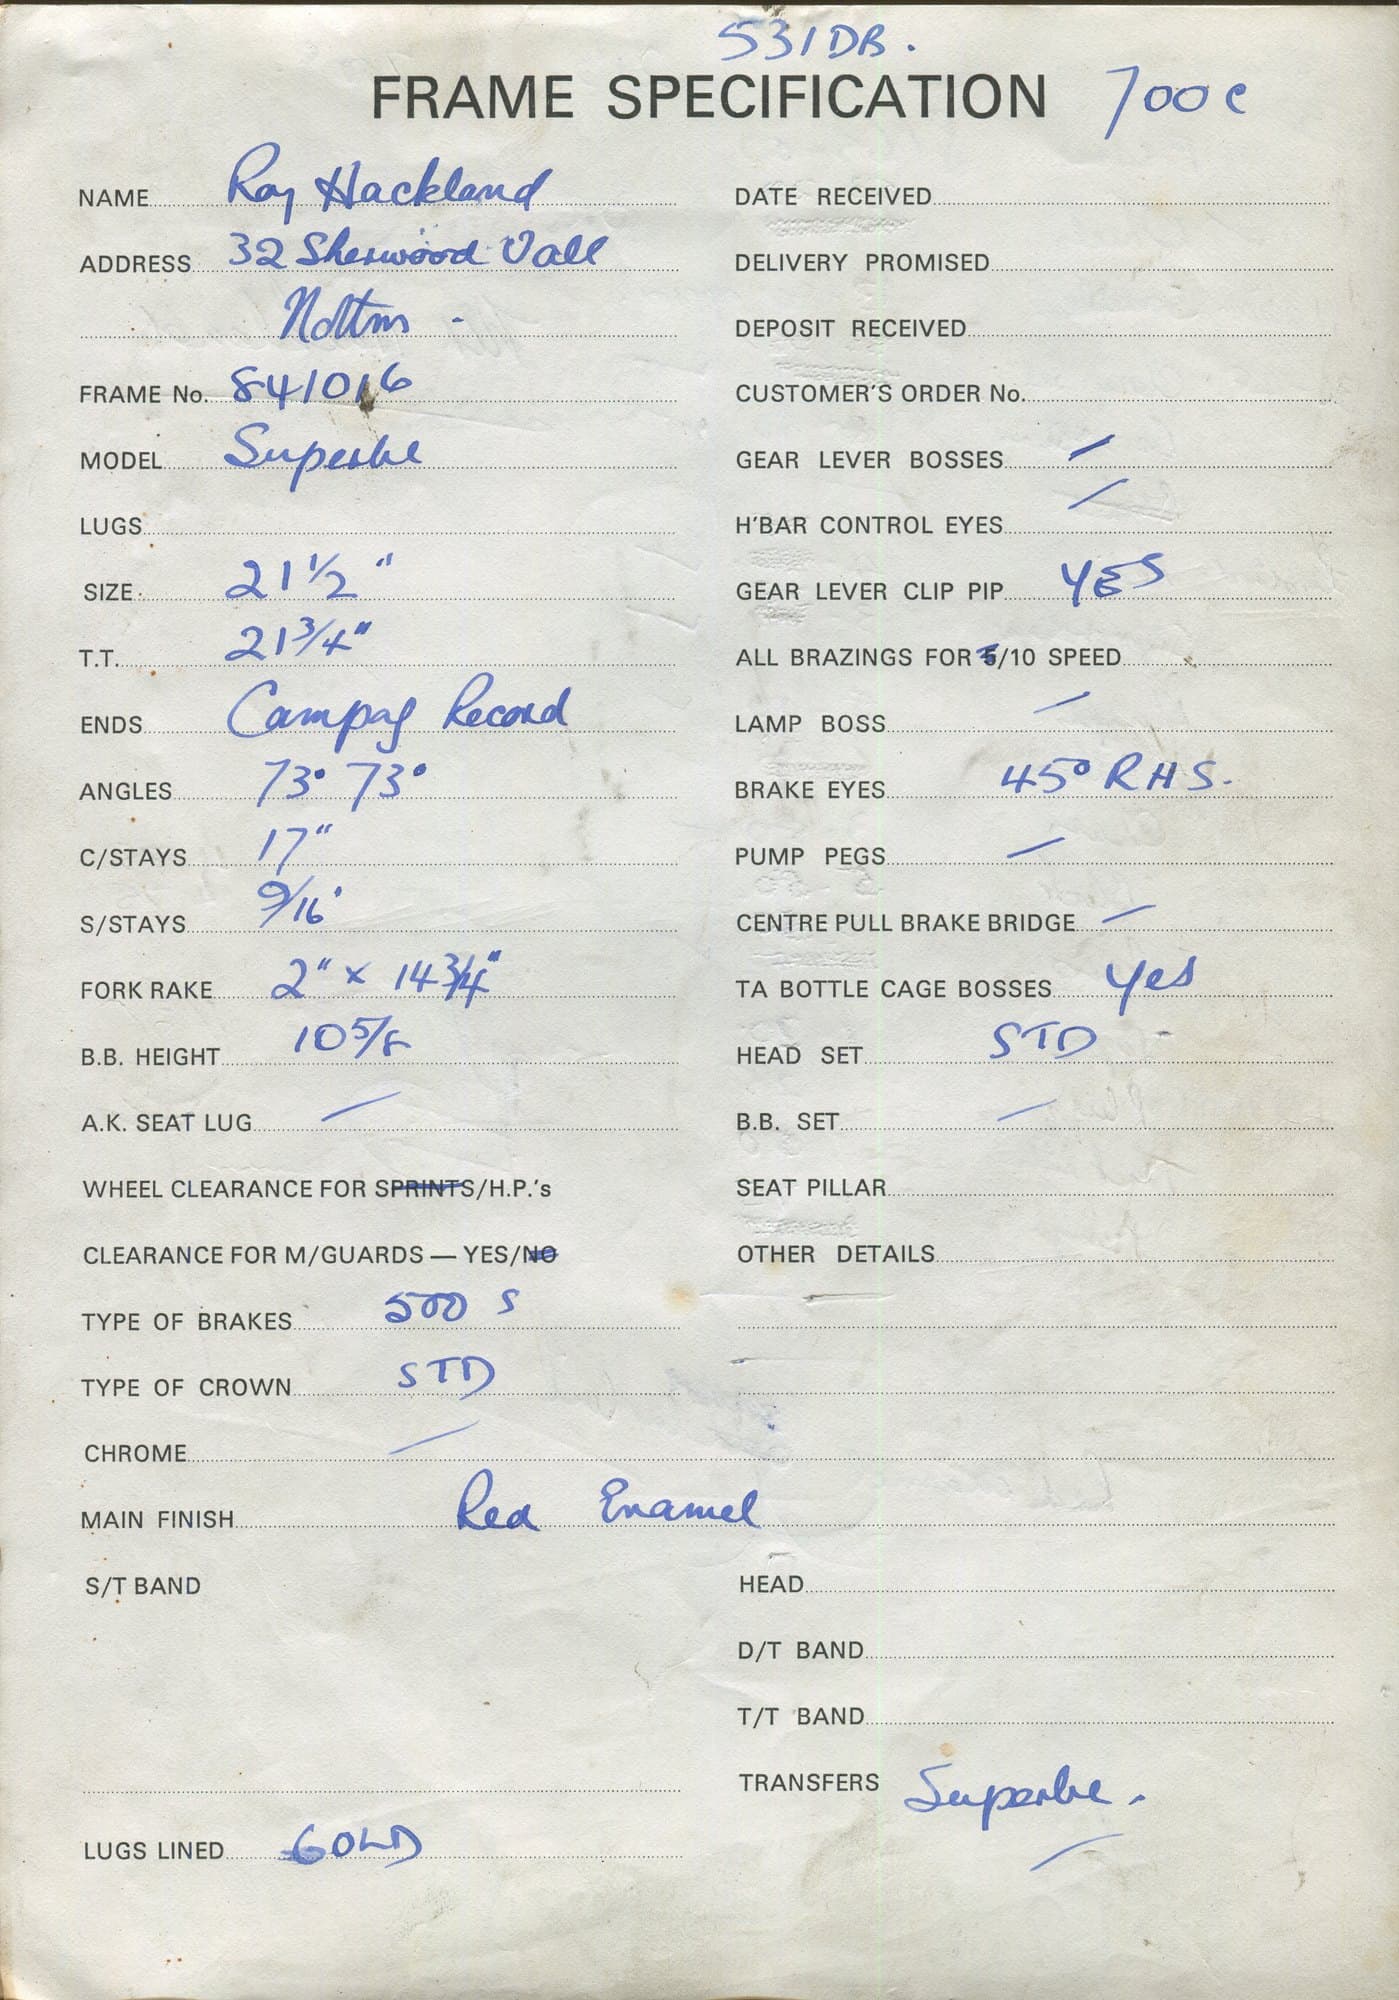 531DB.
FRAME SPECIFICATION 700c
NAME Ray Hackland
ADDRESS 32 Sherwood Vall
Nottm -
FRAME No. 841016
MODEL Superbe
LUGS
SIZE 21 1/2"
T.T. 21 3/4"
ENDS Campag Record
ANGLES 73° 73°
C/STAYS 17"
S/STAYS 9/16"
FORK RAKE 2" x 14 3/4"
B.B. HEIGHT 10 5/8
A.K. SEAT LUG /
WHEEL CLEARANCE FOR SPRINTS/H.P.'s
CLEARANCE FOR M/GUARDS — YES/NO
TYPE OF BRAKES 500 S
TYPE OF CROWN STD
CHROME /
MAIN FINISH Red Enamel
S/T BAND
LUGS LINED GOLD
DATE RECEIVED
DELIVERY PROMISED
DEPOSIT RECEIVED
CUSTOMER'S ORDER No.
GEAR LEVER BOSSES /
H'BAR CONTROL EYES /
GEAR LEVER CLIP PIP YES
ALL BRAZINGS FOR 5/10 SPEED
LAMP BOSS /
BRAKE EYES 45° RHS.
PUMP PEGS /
CENTRE PULL BRAKE BRIDGE /
TA BOTTLE CAGE BOSSES Yes
HEAD SET STD
B.B. SET /
SEAT PILLAR
OTHER DETAILS
HEAD
D/T BAND
T/T BAND
TRANSFERS Superbe.